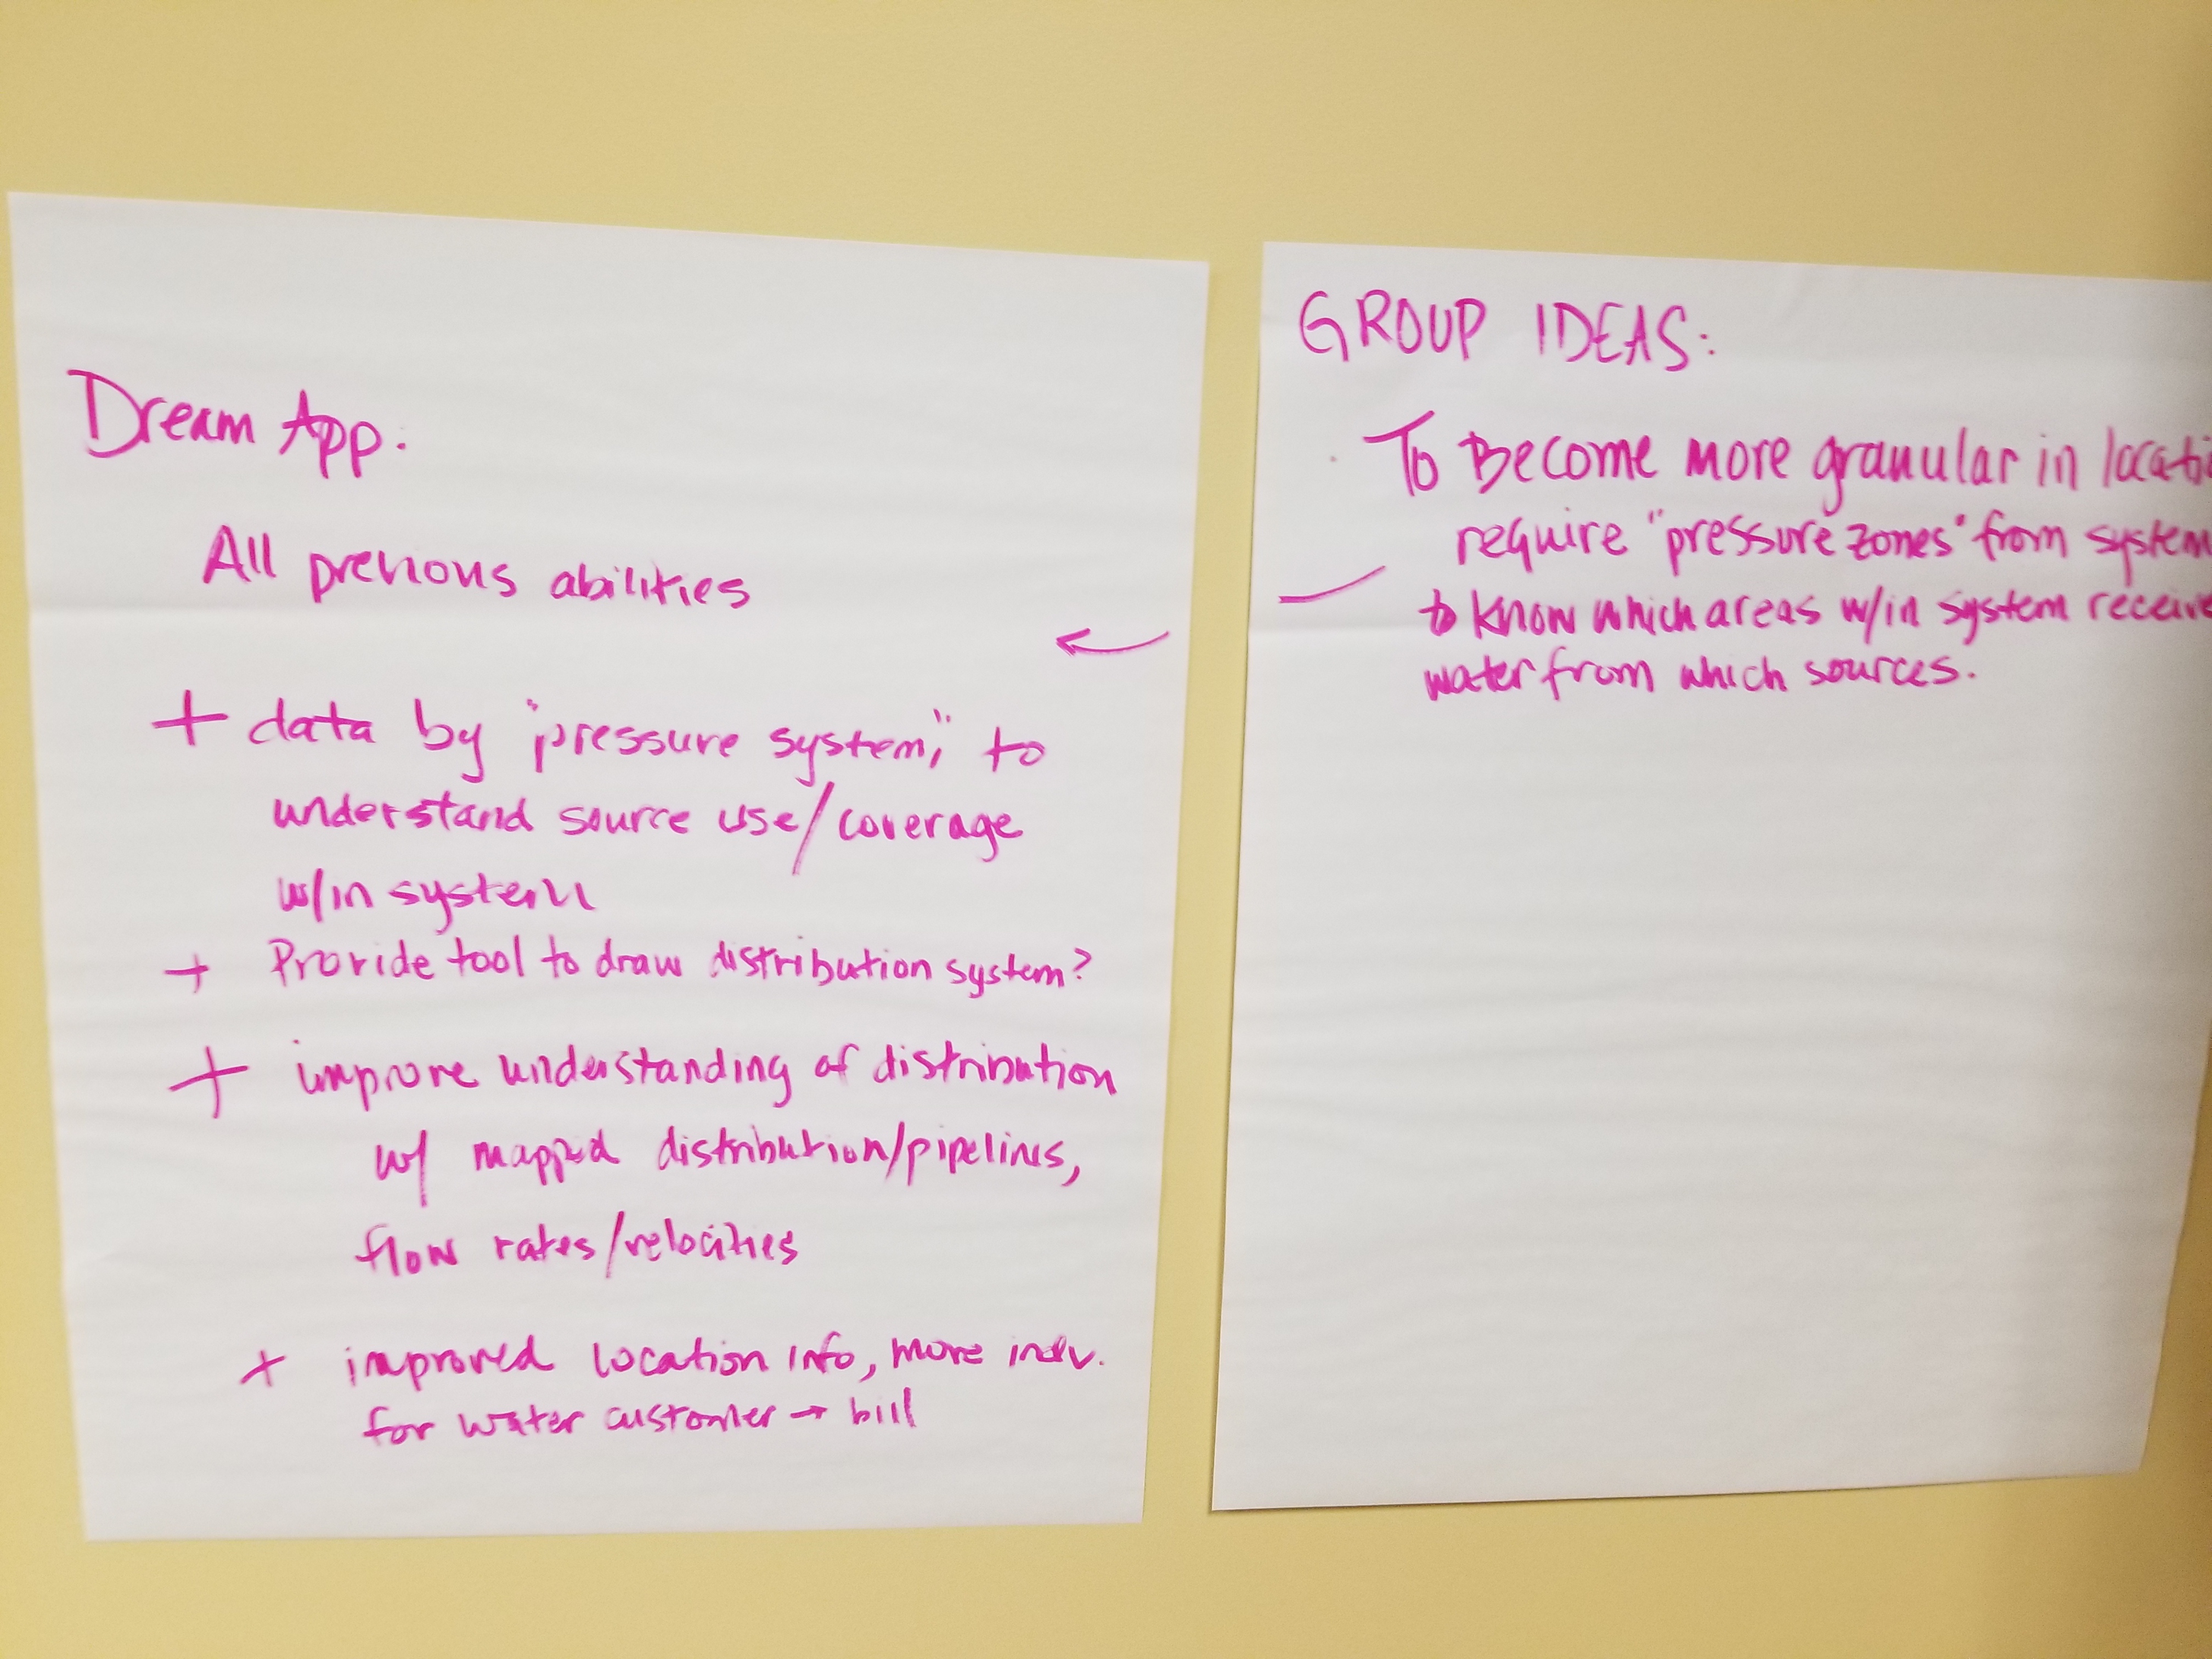 Dream App.
All previous abilities
+ data by "pressure system," to
understand source use/coverage
w/in system
+ Provide tool to draw distribution system?
+ improve understanding of distribution
w/ mapped distribution/pipelines,
flow rates/velocities
+ improved location info, more indv.
for water customer → bill
GROUP IDEAS:
· To Become more granular in locati
require "pressure zones" from system
to know which areas w/in system receive
water from which sources.